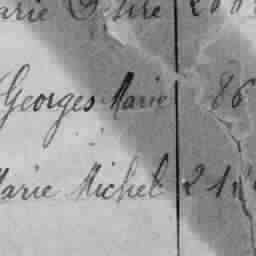 arie
Georges Marie 86
Marie Michel 21